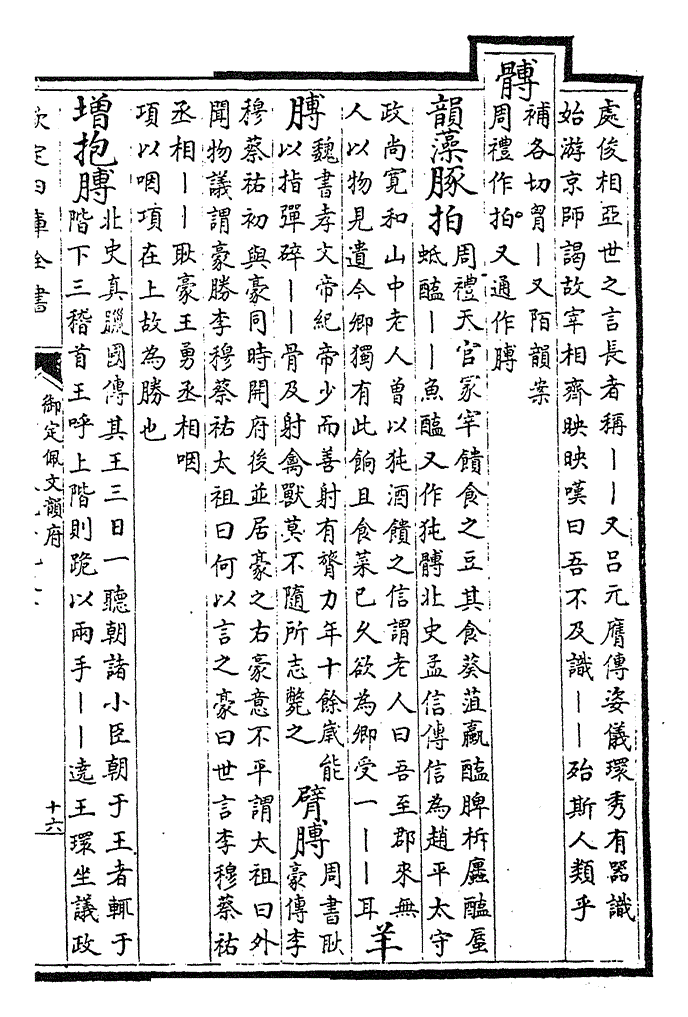 處俊相亞世之言長者稱丨丨又呂元膺傳姿儀環秀有器識
始游京師謁故宰相齊映映嘆曰吾不及識丨丨殆斯人類乎
髆
補各切胷丨又陌韻案
周禮作拍又通作膊
韻藻豚拍
周禮天官冢宰饋食之豆其食葵菹蠃醢脾析蠯醢蜃
蚳醢丨丨魚醢又作㹠髆北史孟信傳信為趙平太守
政尚寛和山中老人曾以㹠酒饋之信謂老人曰吾至郡來無
人以物見遺今卿獨有此餉且食菜已久欲為卿受一丨丨耳
羊
膊
魏書孝文帝紀帝少而善射有膂力年十餘嵗能
以指彈碎丨丨骨及射禽獸莫不隨所志斃之
臂膊
周書耿
豪傳李
穆蔡祐初與豪同時開府後並居豪之右豪意不平謂太祖曰外
聞物議謂豪勝李穆蔡祐太祖曰何以言之豪曰世言李穆蔡祐
丞相丨丨耿豪王勇丞相咽
項以咽項在上故為勝也
增抱膊
北史真臘國傳其王三日一聽朝諸小臣朝于王者輒于
階下三稽首王呼上階則跪以兩手丨丨遶王環坐議政
欽定四庫全書
御定佩文韻府
十六